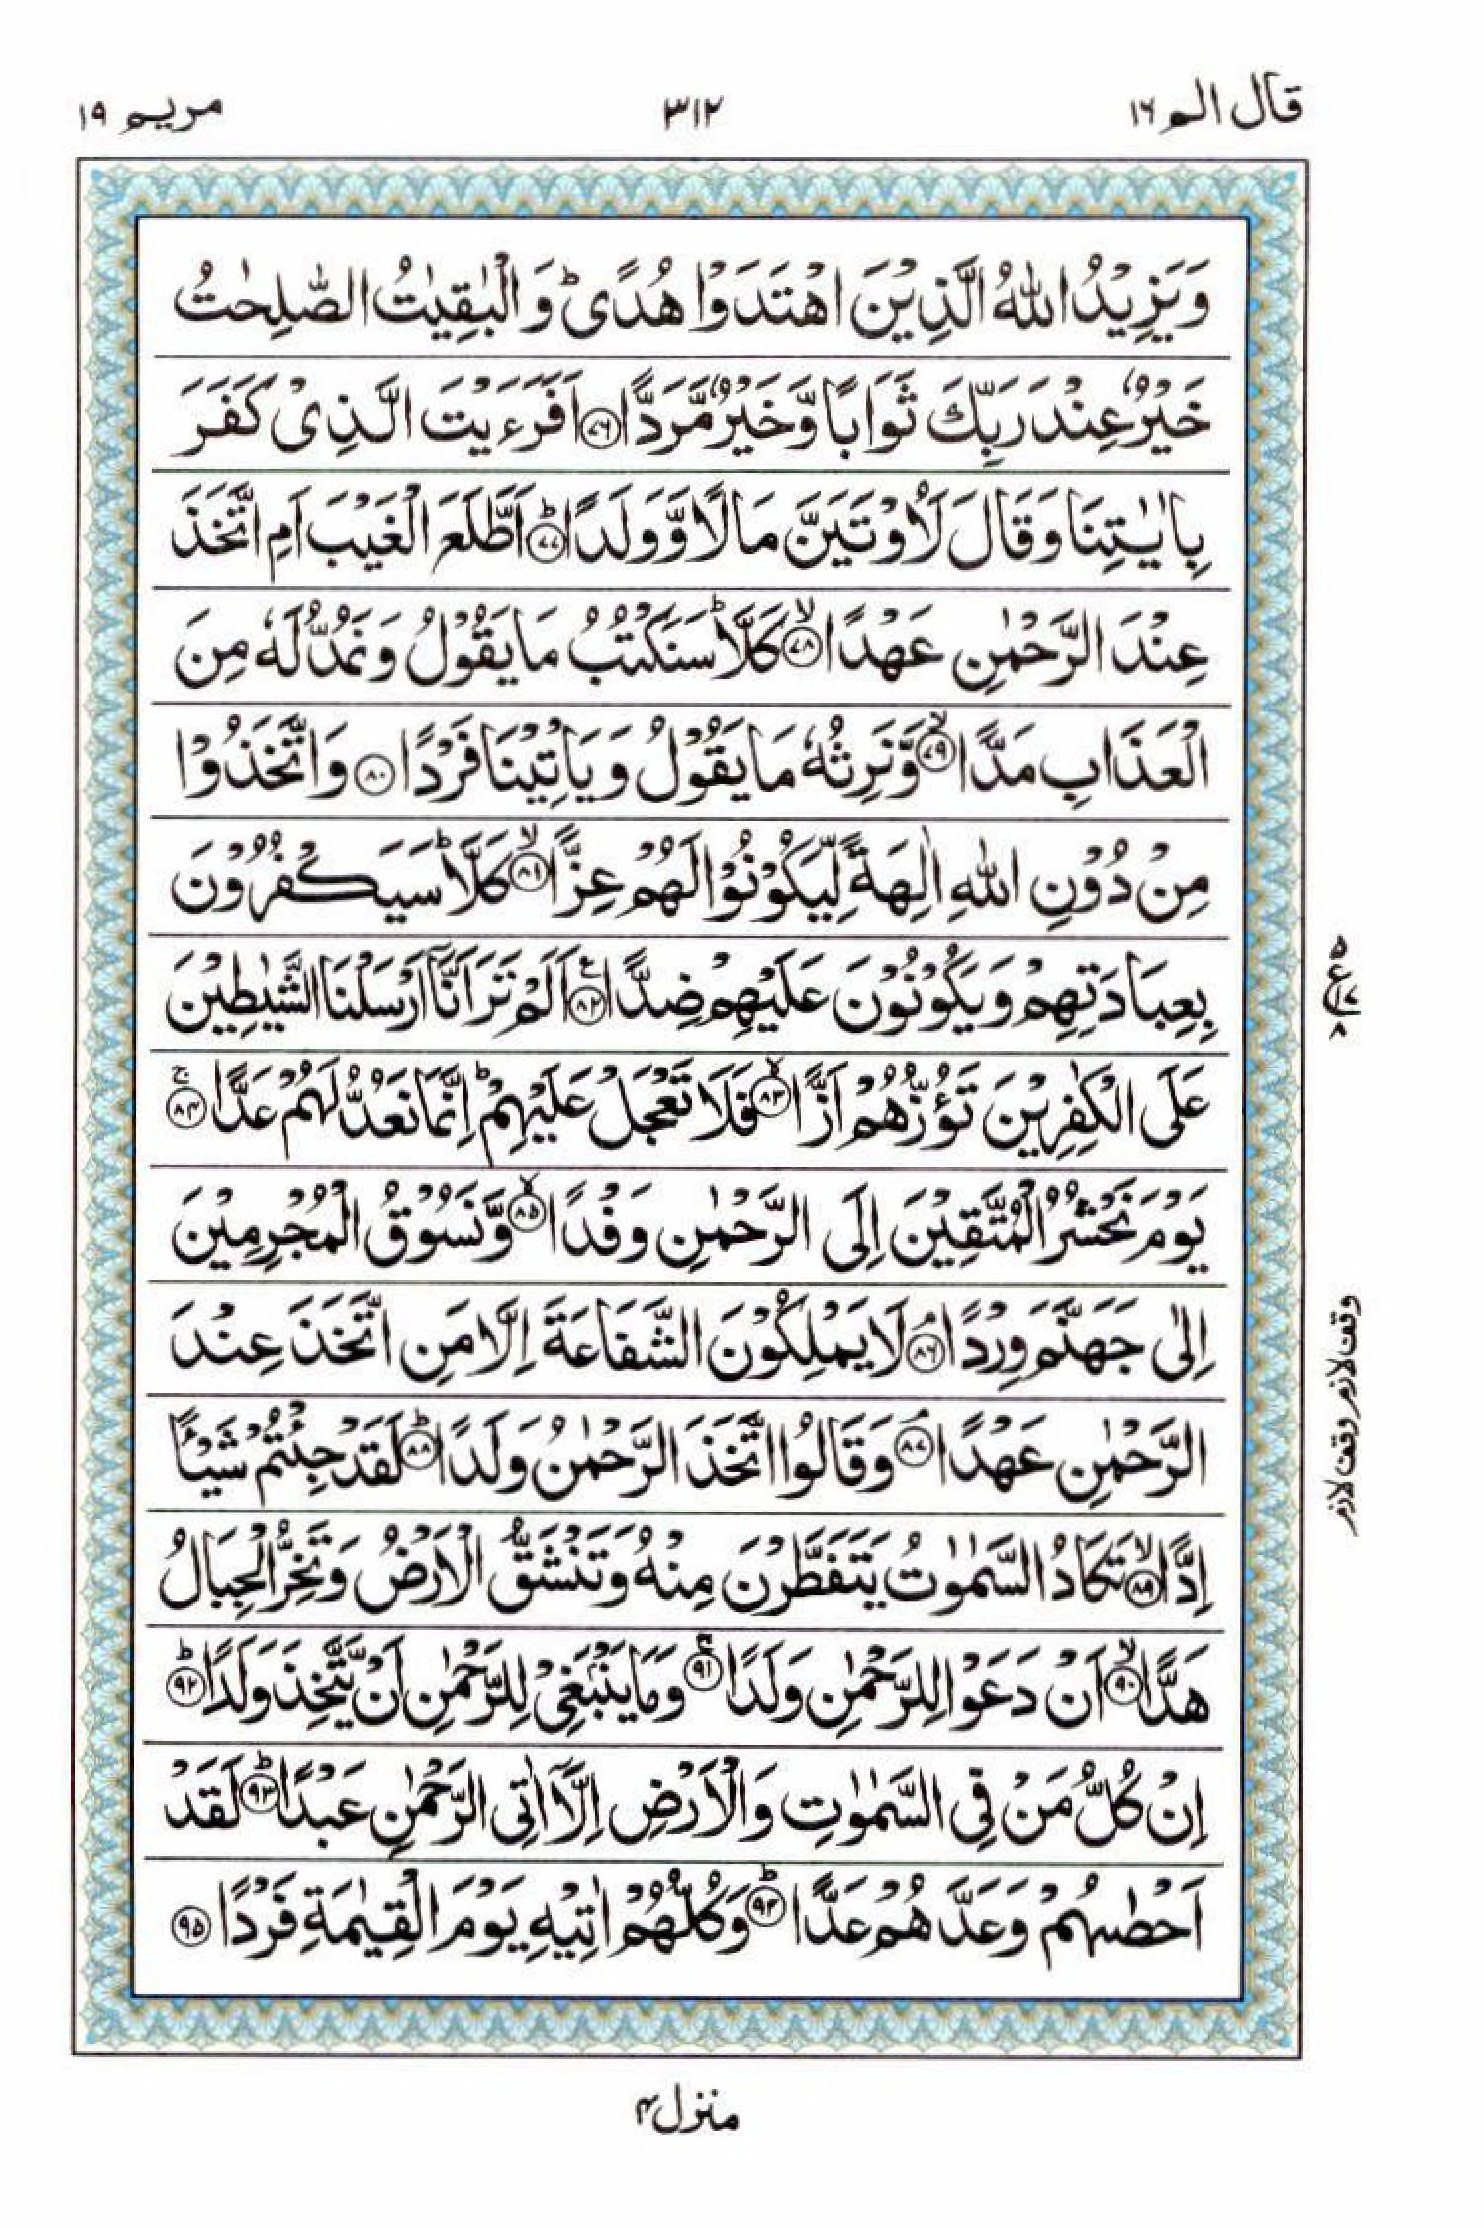 قال الم ۱۶
۳۱۲
مريم ۱۹
وَيَزِيْدُ اللّٰهُ الَّذِيْنَ اهْتَدَوْا هُدًى ؕ وَ الْبٰقِيٰتُ الصّٰلِحٰتُ
خَيْرٌ عِنْدَ رَبِّكَ ثَوَابًا وَّخَيْرٌ مَّرَدًّا ﴿۷۶﴾ اَفَرَءَيْتَ الَّذِىْ كَفَرَ
بِاٰيٰتِنَا وَقَالَ لَاُوْتَيَنَّ مَالًا وَّوَلَدًا ؕ﴿۷۷﴾ اَطَّلَعَ الْغَيْبَ اَمِ اتَّخَذَ
عِنْدَ الرَّحْمٰنِ عَهْدًا ۙ﴿۷۸﴾ كَلَّا ؕ سَنَكْتُبُ مَا يَقُوْلُ وَنَمُدُّ لَهٗ مِنَ
الْعَذَابِ مَدًّا ۙ﴿۷۹﴾ وَّنَرِثُهٗ مَا يَقُوْلُ وَيَاْتِيْنَا فَرْدًا ﴿۸۰﴾ وَاتَّخَذُوْا
مِنْ دُوْنِ اللّٰهِ اٰلِهَةً لِّيَكُوْنُوْا لَهُمْ عِزًّا ۙ﴿۸۱﴾ كَلَّا ؕ سَيَكْفُرُوْنَ
بِعِبَادَتِهِمْ وَيَكُوْنُوْنَ عَلَيْهِمْ ضِدًّا ﴿۸۲﴾ اَلَمْ تَرَ اَنَّاۤ اَرْسَلْنَا الشَّيٰطِيْنَ
عَلَى الْكٰفِرِيْنَ تَؤُزُّهُمْ اَزًّا ۙ﴿۸۳﴾ فَلَا تَعْجَلْ عَلَيْهِمْ ؕ اِنَّمَا نَعُدُّ لَهُمْ عَدًّا ۚ﴿۸۴﴾
يَوْمَ نَحْشُرُ الْمُتَّقِيْنَ اِلَى الرَّحْمٰنِ وَفْدًا ۙ﴿۸۵﴾ وَّنَسُوْقُ الْمُجْرِمِيْنَ
اِلٰى جَهَنَّمَ وِرْدًا ۘ﴿۸۶﴾ لَا يَمْلِكُوْنَ الشَّفَاعَةَ اِلَّا مَنِ اتَّخَذَ عِنْدَ
الرَّحْمٰنِ عَهْدًا ۘ﴿۸۷﴾ وَقَالُوا اتَّخَذَ الرَّحْمٰنُ وَلَدًا ؕ﴿۸۸﴾ لَقَدْ جِئْتُمْ شَيْـًٔا
اِدًّا ۙ﴿۸۹﴾ تَكَادُ السَّمٰوٰتُ يَتَفَطَّرْنَ مِنْهُ وَتَنْشَقُّ الْاَرْضُ وَتَخِرُّ الْجِبَالُ
هَدًّا ۙ﴿۹۰﴾ اَنْ دَعَوْا لِلرَّحْمٰنِ وَلَدًا ۚ﴿۹۱﴾ وَمَا يَنْۢبَغِىْ لِلرَّحْمٰنِ اَنْ يَّتَّخِذَ وَلَدًا ؕ﴿۹۲﴾
اِنْ كُلُّ مَنْ فِى السَّمٰوٰتِ وَالْاَرْضِ اِلَّاۤ اٰتِى الرَّحْمٰنِ عَبْدًا ؕ﴿۹۳﴾ لَقَدْ
اَحْصٰىهُمْ وَعَدَّهُمْ عَدًّا ؕ﴿۹۴﴾ وَكُلُّهُمْ اٰتِيْهِ يَوْمَ الْقِيٰمَةِ فَرْدًا ﴿۹۵﴾
۵ ع ۱۷ ۸
وقف لازم وقف لازم
منزل ۴